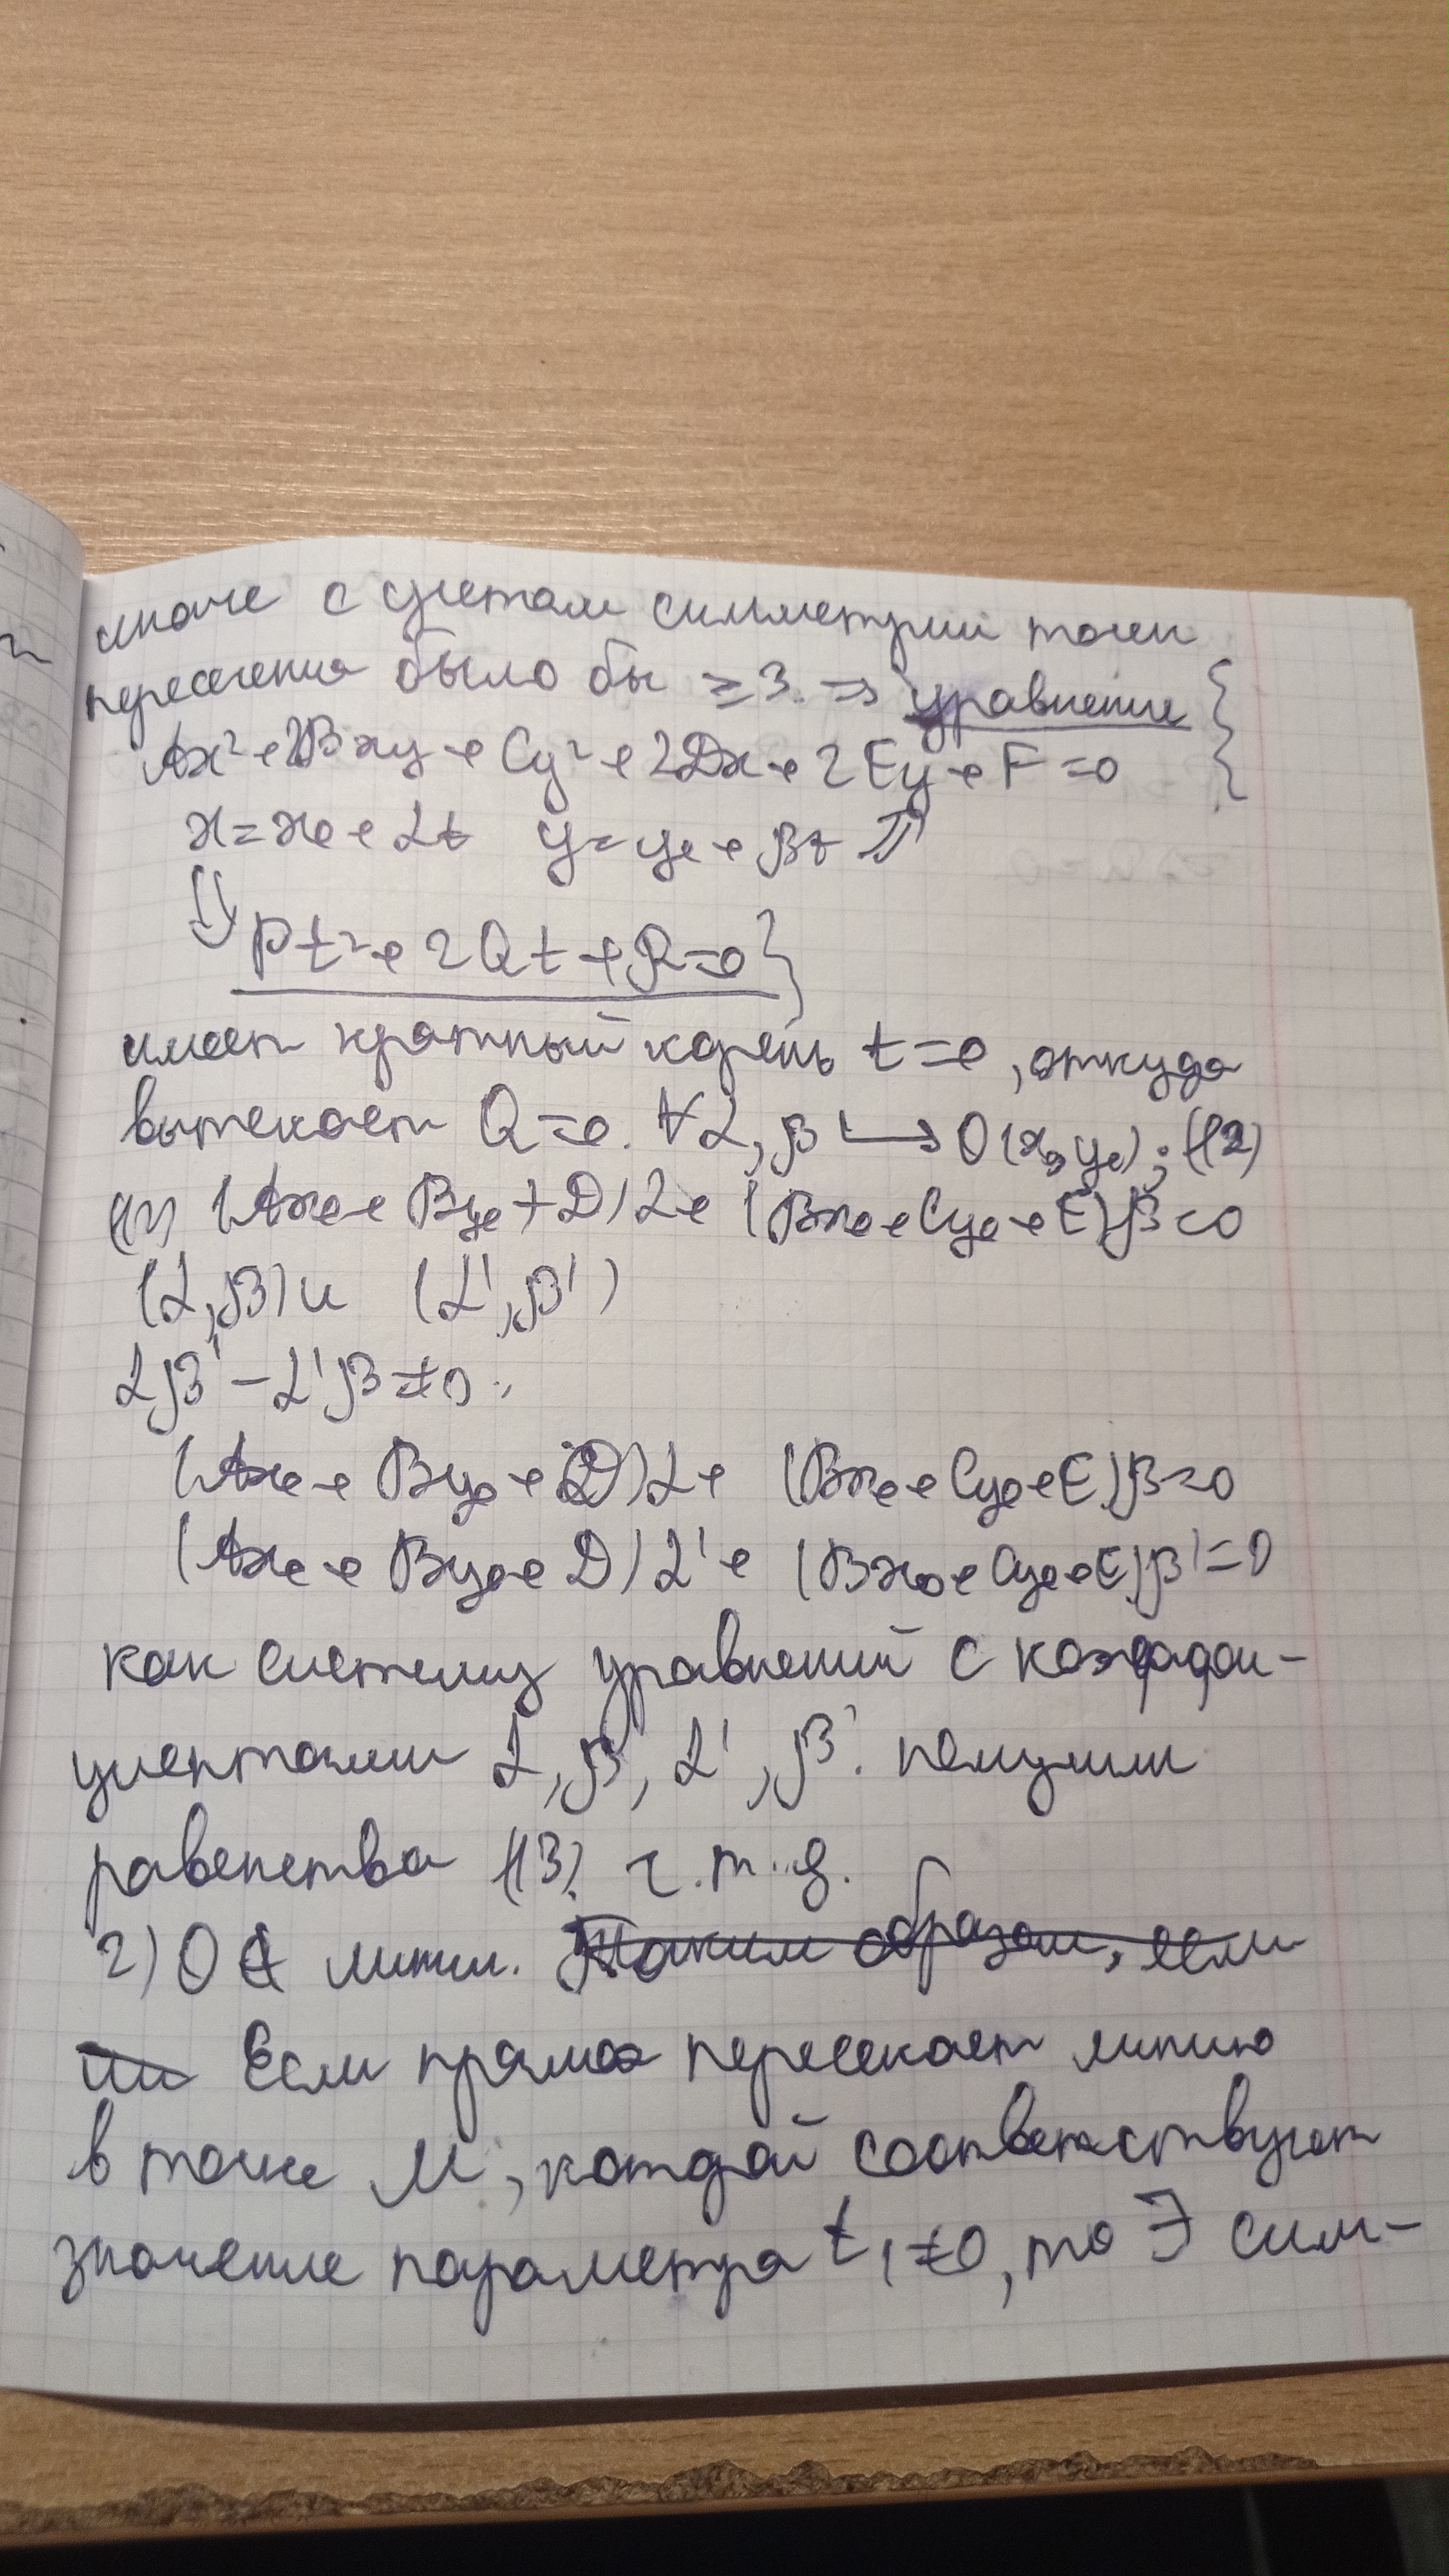 иначе с учетом симметрии точек
пересечения было бы ≥3. ⇒ уравнение
Ax²+2Bxy+Cy²+2Dx+2Ey+F=0
x=x₀+αt y=y₀+βt
⇓ Pt²+2Qt+R=0
имеет кратный корень t=0, откуда
вытекает Q=0. ∀α,β ↦ O(x₀,y₀); (12)
(12) (Ax₀+By₀+D)α+(Bx₀+Cy₀+E)β=0
(α,β) и (α',β')
αβ'-α'β≠0:
(Ax₀+By₀+D)α+(Bx₀+Cy₀+E)β=0
(Ax₀+By₀+D)α'+(Bx₀+Cy₀+E)β'=0
как систему уравнений с коэффи-
циентами α,β,α',β'. получим
равенства (13) ч.т.д.
2) O ∉ линии. Таким образом, если
Если прямая пересекает линию
в точке M, которой соответствует
значение параметра t₁≠0, то ∃ сим-